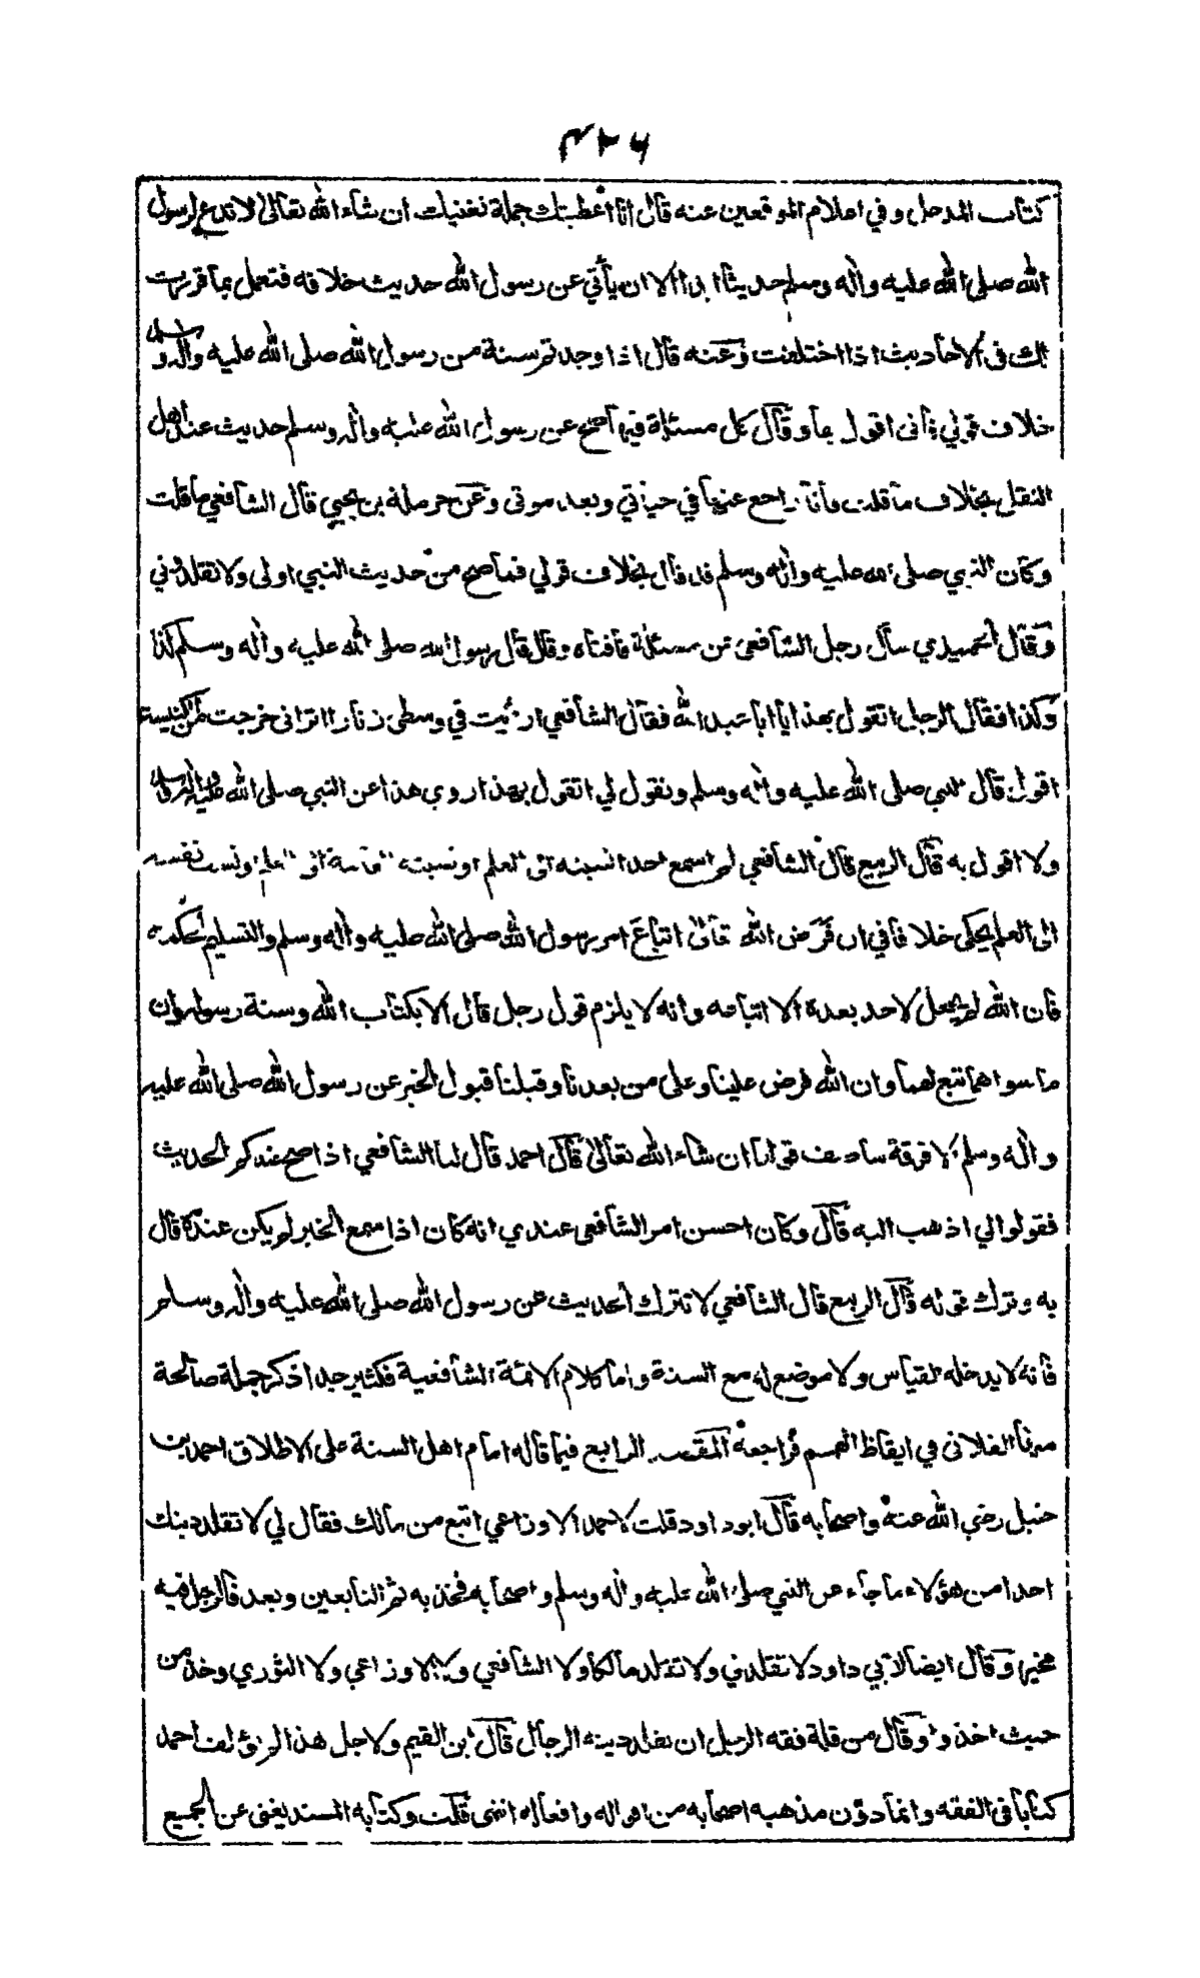 ٤٢٦
كتاب المدخل وفي اعلام الموقعين عنه قال انا اعطيتك جملة تغنيك ان شاء الله تعالى لا تدع لرسول
الله صلى الله عليه واله وسلم حديثا ابدا الا ان يأتي عن رسول الله حديث خلافه فتعمل بما قررت
لك في الاحاديث اذا اختلفت وعنه قال اذا وجدتم سنة من رسول الله صلى الله عليه واله وسلم
خلاف قولي فاني اقول بها وقال كل مسئلة فيها صح عن رسول الله عليه واله وسلم حديث عند اهل
النقل بخلاف ما قلت فأنا راجع عنها في حياتي وبعد موتي وعن حرملة بن يحيى قال الشافعي ما قلت
وكان النبي صلى الله عليه واله وسلم قد قال بخلاف قولي فما صح من حديث النبي اولى ولا تقلدوني
وقال الحميدي سأل رجل الشافعي عن مسئلة فافتاه وقال قال رسول الله صلى الله عليه واله وسلم كذا
وكذا فقال الرجل اتقول بهذا يا ابا عبد الله فقال الشافعي ارئيت في وسطى زنارا اتراني خرجت من الكنيسة
اقول قال النبي صلى الله عليه واله وسلم وتقول لي اتقول بهذا روي هذا عن النبي صلى الله عليه واله وسلم
ولا اقول به قال الربيع قال الشافعي لم اسمع احدا نسبته الى العلم او نسبته العامة الى علم او نسب نفسه
الى العلم يحكى خلافا في ان فرض الله تعالى اتباع امر رسول الله صلى الله عليه واله وسلم والتسليم لحكمه
فان الله لم يجعل لاحد بعده الا اتباعه وانه لا يلزم قول رجل قال الا بكتاب الله وسنة رسوله وان
ما سواهما تبع لهما وان الله فرض علينا وعلى من بعدنا وقبلنا قبول الخبر عن رسول الله صلى الله عليه
واله وسلم الا فرقة سأصف قولها ان شاء الله تعالى قال احمد قال لنا الشافعي اذا صح عندكم الحديث
فقولوا لي اذهب اليه قال وكان احسن امر الشافعي عندي انه كان اذا سمع الخبر لم يكن عنده قال
به وترك قوله قال الربيع قال الشافعي لا تترك الحديث عن رسول الله صلى الله عليه واله وسلم
فانه لا يدخله القياس ولا موضع له مع السنة واما كلام الائمة الشافعية فكثير جدا ذكر جملة صالحة
منها الفلاني في ايقاظ الهمم فراجعه المقصد الرابع فيما قاله امام اهل السنة على الاطلاق احمد بن
حنبل رضي الله عنه واصحابه قال ابو داود قلت لاحمد الاوزاعي اتبع من مالك فقال لي لا تقلد دينك
احدا من هؤلاء ما جاء عن النبي صلى الله عليه واله وسلم واصحابه فخذ به ثم التابعين وبعد فالرجل فيه
مخير وقال ايضا لابي داود لا تقلدني ولا تقلد مالكا ولا الشافعي ولا الاوزاعي ولا الثوري وخذ من
حيث اخذوا وقال من قلة فقه الرجل ان يقلد دينه الرجال قال ابن القيم ولاجل هذا لم يؤلف احمد
كتابا في الفقه وانما دون مذهبه اصحابه من اقواله وافعاله انتهى قلت وكتابه المسند يغني عن الجميع